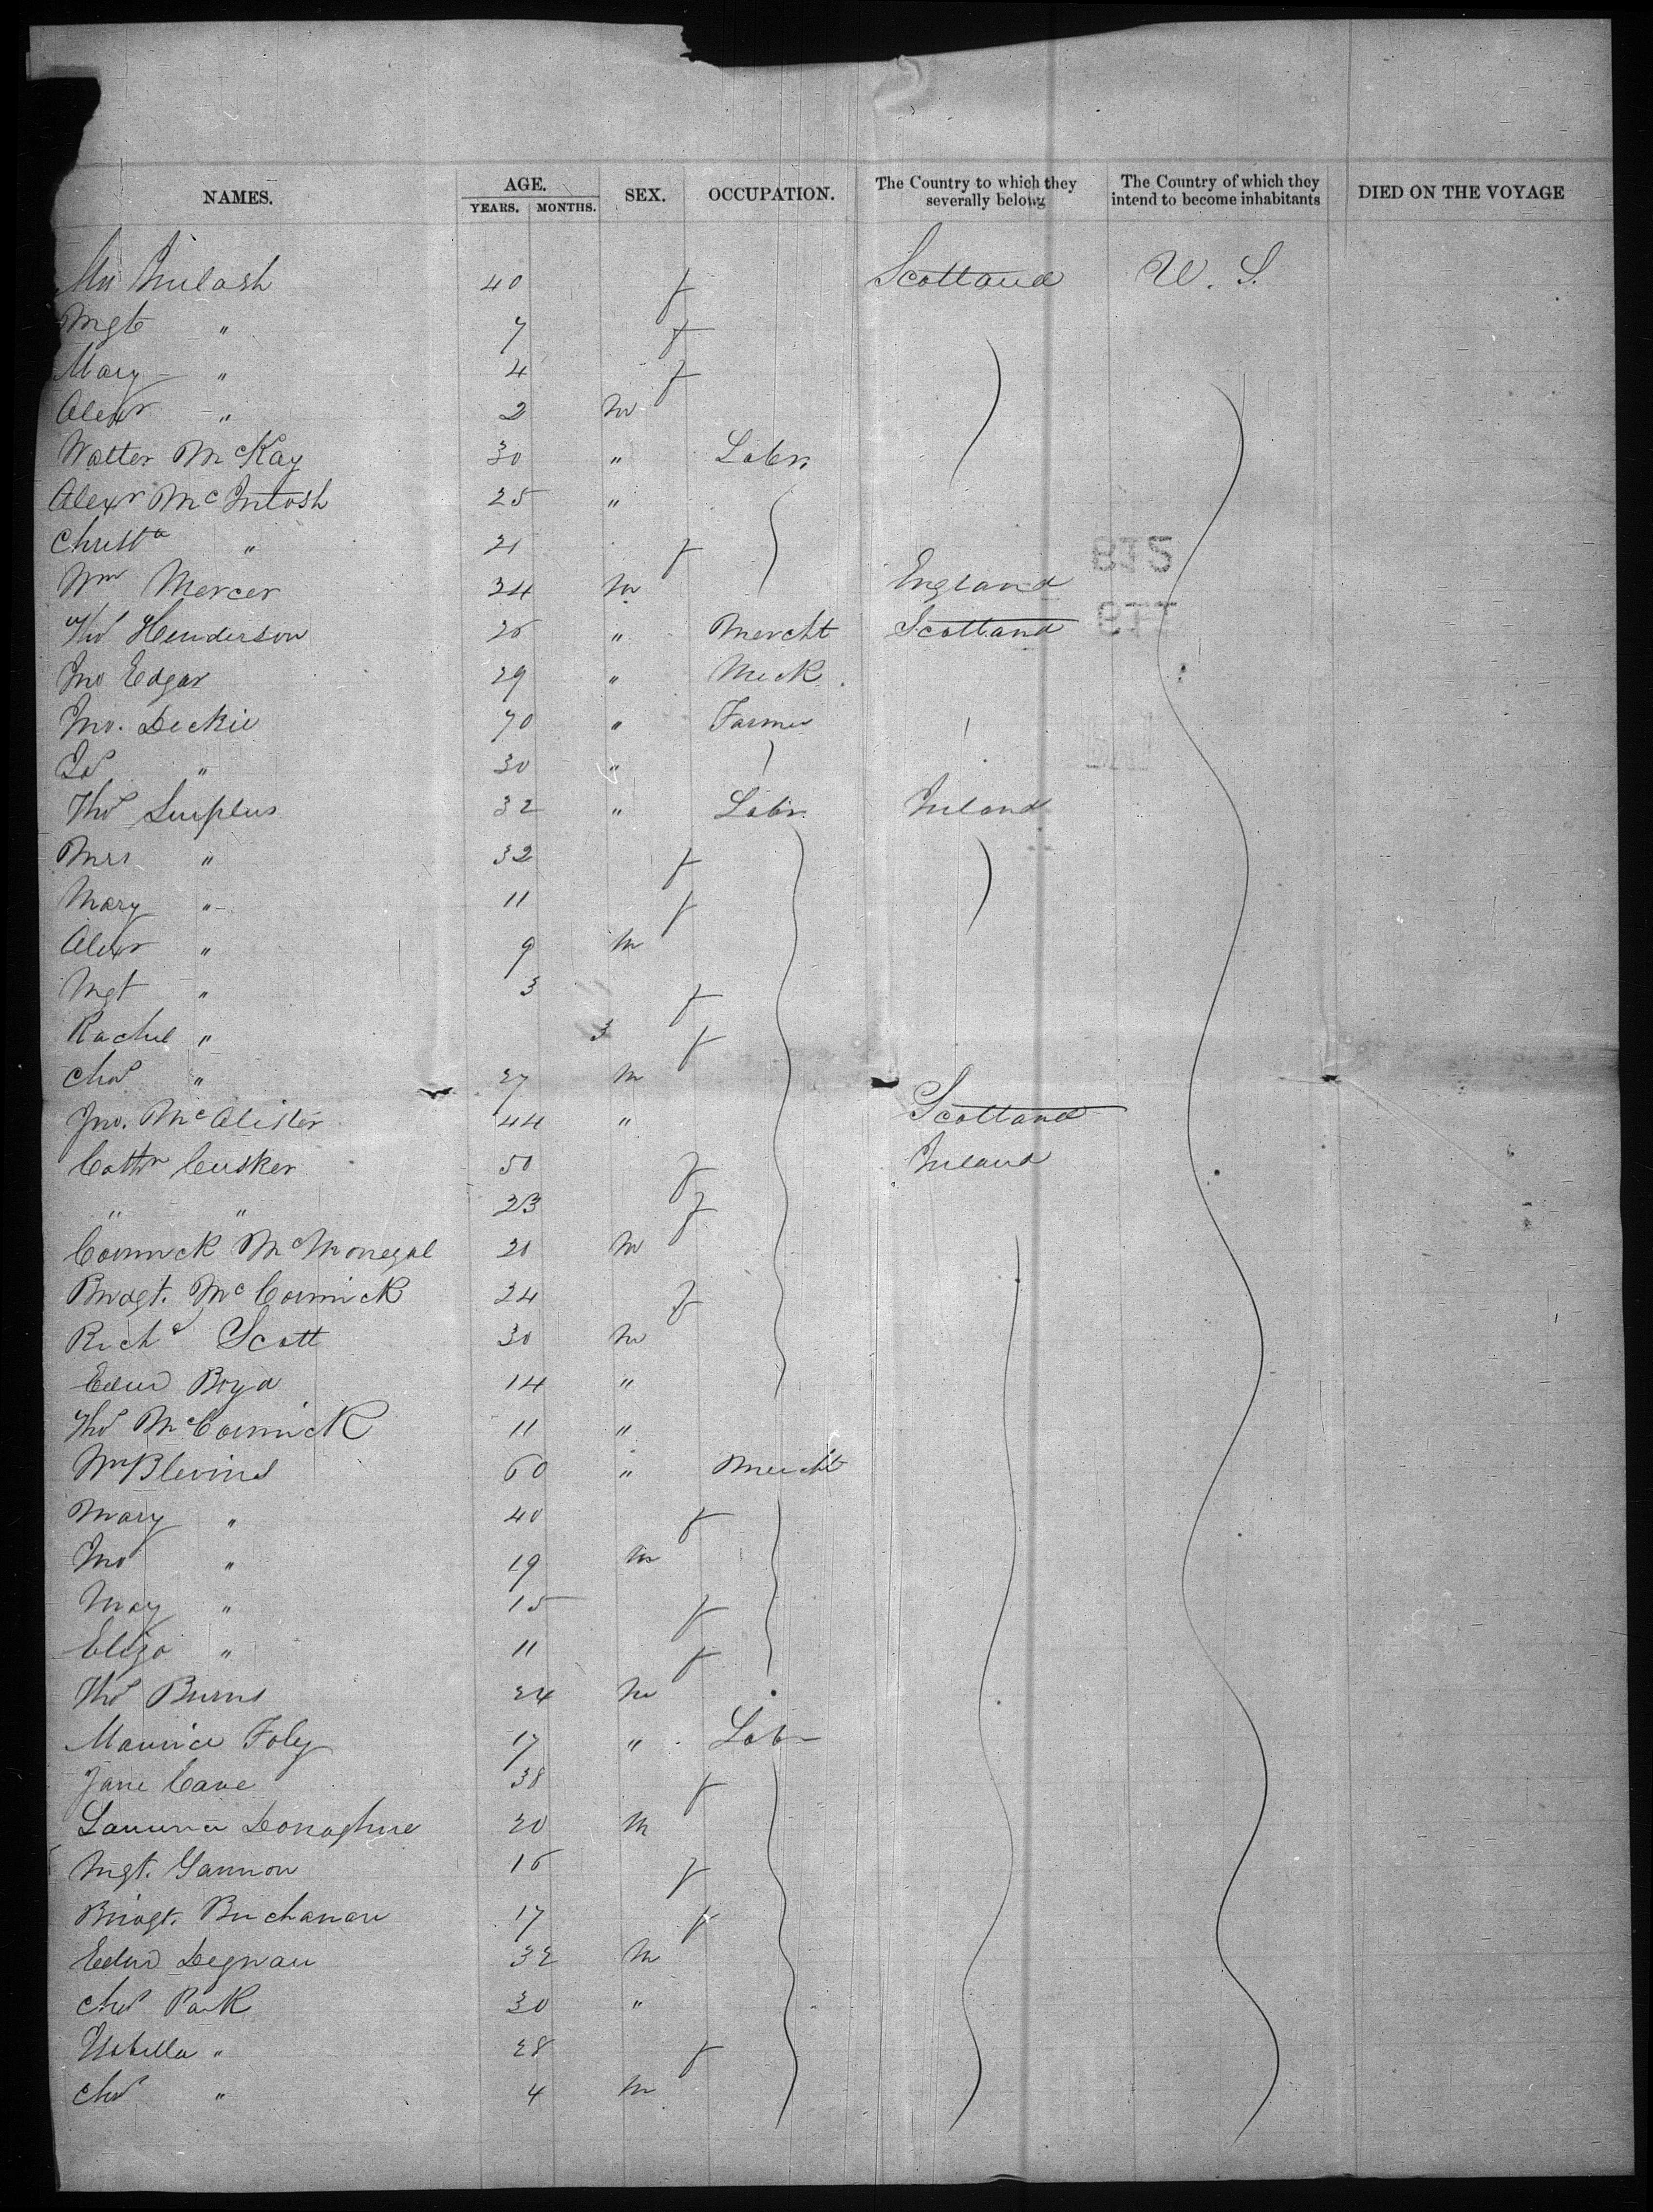 NAMES. AGE. SEX. OCCUPATION. The Country to which they severally belong The Country of which they intend to become inhabitants DIED ON THE VOYAGE
YEARS. MONTHS.
40 f Scotland U. S.
Mgt " 7 f
Mary " 4 f
Alexr " 2 m
Walter McKay 30 " Labr.
Alexr McIntosh 25 "
Christa " 21 f
Wm Mercer 34 m England
Thos Henderson 26 " Mercht Scotland
Jno Edgar 29 " Mech
Jno. Dickie 70 " Farmer
Jas " 30 "
Thos Surplus 32 " Labr. Ireland
Mrs " 32 f
Mary " 11 f
Alexr " 9 m
Mgt " 3 f
Rachel " 3 f
Chas " 27 m
Jno. McAlister 44 " Scotland
Cathn Cusker 50 f Ireland
" " 23 f
Cormick McMonegal 20 m
Bridgt. McCormick 24 f
Richd Scott 30 m
Edwd Boyd 14 "
Thos McCormick 11 "
Wm Blevins 60 " Mercht
Mary " 40 f
Jno " 19 m
May " 15 f
Eliza " 11 f
Thos Burns 24 m
Maurice Foley 17 " Labr
Jane Cane 38 f
Donaghue 20 m
Mgt. Gannon 16 f
Bridgt. Buchanan 17 f
Edwd Degnan 32 m
Chas Park 30 "
Isabella " 28 f
Chas " 4 m